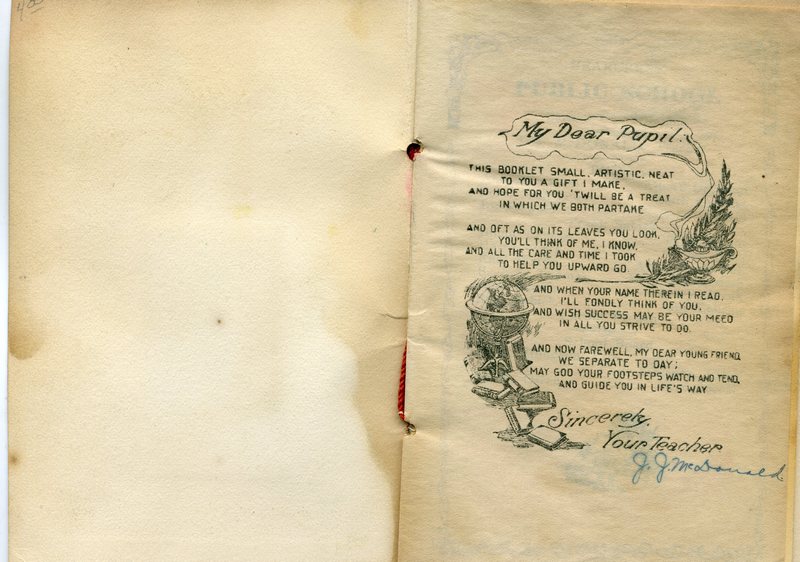 My Dear Pupil:
THIS BOOKLET SMALL, ARTISTIC, NEAT
TO YOU A GIFT I MAKE,
AND HOPE FOR YOU 'TWILL BE A TREAT
IN WHICH WE BOTH PARTAKE
AND OFT AS ON ITS LEAVES YOU LOOK,
YOU'LL THINK OF ME, I KNOW.
AND ALL THE CARE AND TIME I TOOK
TO HELP YOU UPWARD GO.
AND WHEN YOUR NAME THEREIN I READ,
I'LL FONDLY THINK OF YOU,
AND WISH SUCCESS MAY BE YOUR MEED
IN ALL YOU STRIVE TO DO.
AND NOW FAREWELL, MY DEAR YOUNG FRIEND,
WE SEPARATE TO DAY;
MAY GOD YOUR FOOTSTEPS WATCH AND TEND,
AND GUIDE YOU IN LIFE'S WAY
Sincerely,
Your Teacher
J. J. McDonald
PUBLIC SCHOOL